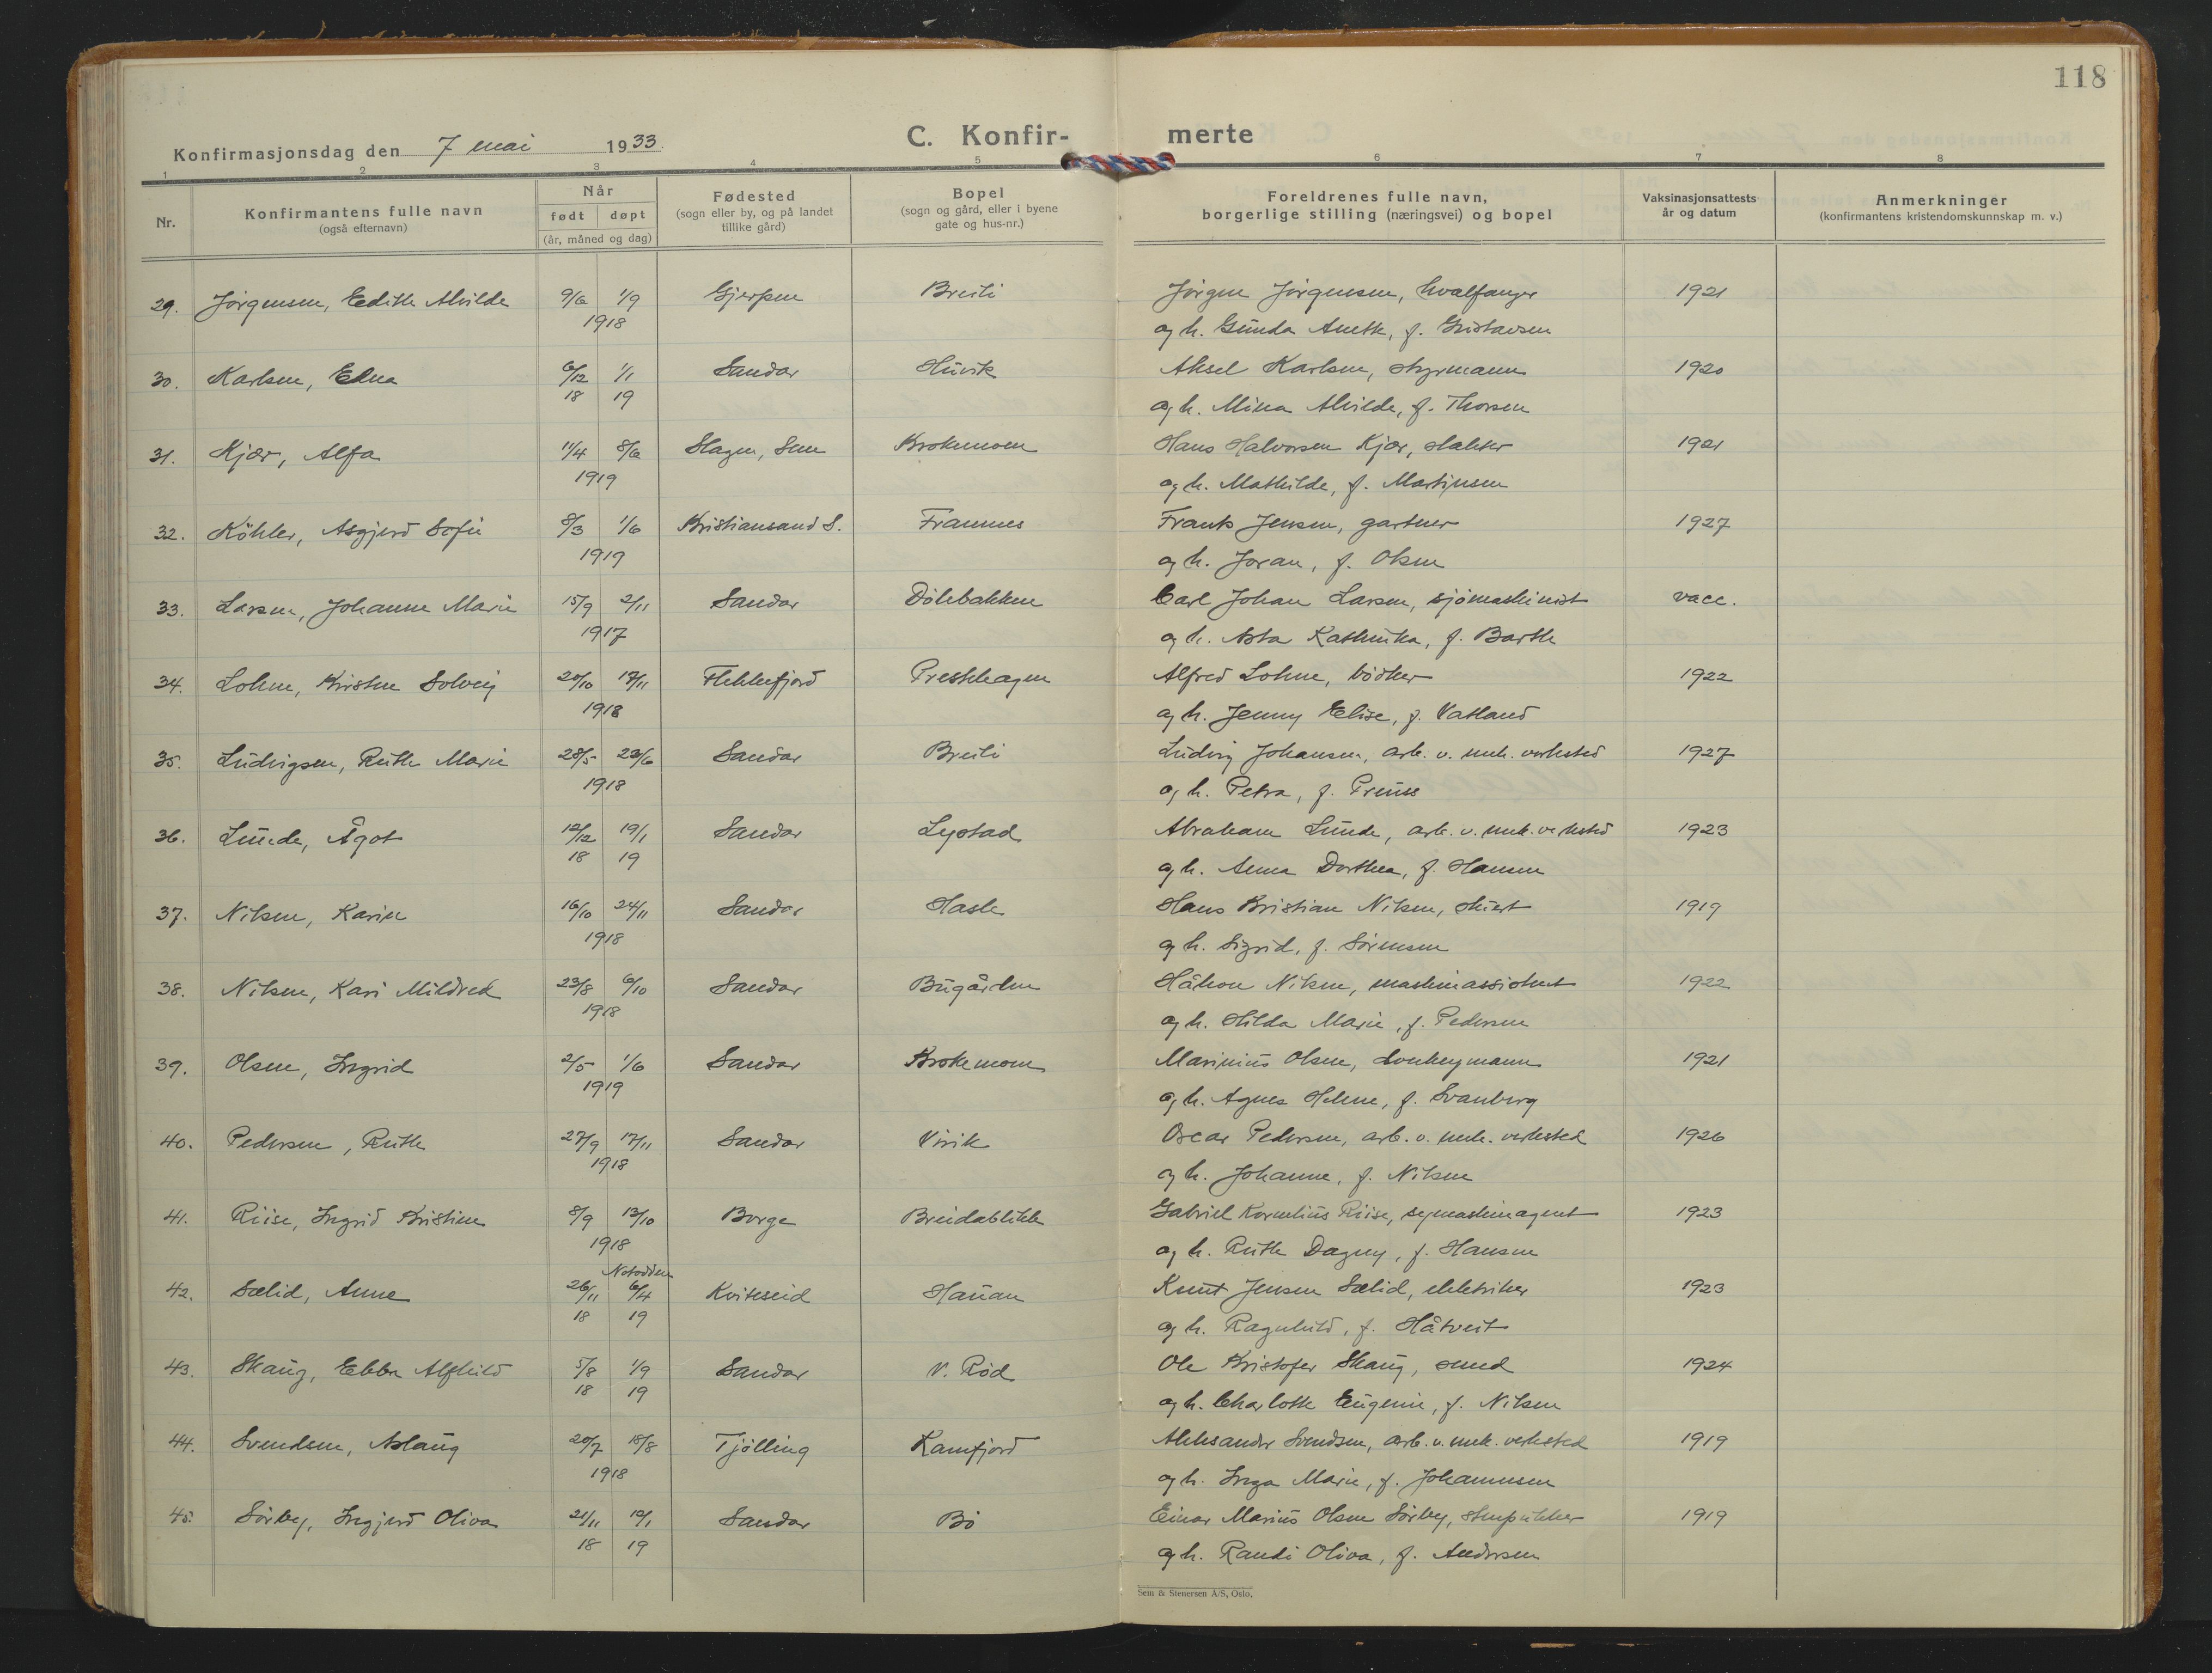 118
Konfirmasjonsdag den 7 mai 1933.
C. Konfir- merte
1 2 3 4 5 6 7 8
Nr.
Konfirmantens fulle navn
(også efternavn)
Når
født døpt
(år, måned og dag)
Fødested
(sogn eller by, og på landet
tillike gård)
Bopel
(sogn og gård, eller i byene
gate og hus-nr.)
Foreldrenes fulle navn,
borgerlige stilling (næringsvei) og bopel
Vaksinasjonsattests
år og datum
Anmerkninger
(konfirmantens kristendomskunnskap m. v.)
29. Jørgensen, Edith Alvilde 9/6 1/9 Gjerpen Breili Jørgen Jørgensen, hvalfanger 1921
1918 og h. Gunda Anette, f. Gustavsen
30. Karlsen, Edna 6/12 1/1 Sandar Huvik Aksel Karlsen, styrmann 1920
18 19 og h. Mina Alvilde, f. Thorsen
31. Kjær, Alfa 11/4 8/6 Slagen, Sem Brokemoen Hans Halvorsen Kjær, slakter 1921
1919 og h. Mathilde, f. Martinsen
32. Köhler, Asgjerd Sofie 8/3 1/6 Kristiansand S. Framnes Frants Jensen, gartner 1927
1919 og h. Joran, f. Olsen
33. Larsen, Johanne Marie 15/9 2/11 Sandar Dölebakken Carl Johan Larsen, sjömaskinist vacc.
1917 og h. Asta Kathinka, f. Barth
34. Lohne, Kirsten Solveig 20/10 17/11 Flekkefjord Presthagen Alfred Lohne, bödker 1922
1918 og h. Jenny Elise, f. Vatland
35. Ludvigsen, Ruth Marie 28/5 23/6 Sandar Breili Ludvig Johansen, arb. v. mek. verksted 1927
1918 og h. Petra, f. Preuss
36. Lunde, Ågot 12/12 19/1 Sandar Lystad Abraham Lunde, arb. v. mek. verksted 1923
18 19 og h. Anna Dorthea, f. Hansen
37. Nilsen, Karin 16/10 24/11 Sandar Hasle Hans Kristian Nilsen, stuert 1919
1918 og h. Sigrid, f. Sörensen
38. Nilsen, Kari Mildred 23/8 6/10 Sandar Bugården Håkon Nilsen, maskinassistent 1922
1918 og h. Hilda Marie, f. Pedersen
39. Olsen, Ingrid 2/5 1/6 Sandar Brokemoen Marinius Olsen, donkeymann 1921
1919 og h. Agnes Helene, f. Svanberg
40. Pedersen, Ruth 27/9 17/11 Sandar Virik Oscar Pedersen, arb. v. mek. verksted 1926
1918 og h. Johanne, f. Nilsen
41. Riise, Ingrid Kristine 8/9 13/10 Borge Breidablikk Gabriel Kornelius Riise, symaskinagent 1923
1918 og h. Ruth Dagny, f. Hansen
Notodden
42. Sælid, Anne 26/11 6/4 Kviteseid Haüan Knut Jensen Sælid, elektriker 1923
18 19 og h. Ragnhild, f. Håtveit
43. Skaug, Ebba Alfhild 5/8 1/9 Sandar V. Röd Ole Kristofer Skaug, smed 1924
18 19 og h. Charlotte Eugenie, f. Nilsen
44. Svendsen, Aslaug 20/7 18/8 Tjölling Kamfjord Aleksander Svendsen, arb. v. mek. verksted 1919
1918 og h. Inga Marie, f. Johannesen
45. Sörby, Ingjerd Oliva 21/11 12/1 Sandar Bö Einar Marius Olsen Sörby, stenpikker 1919
18 19 og h. Randi Oliva, f. Andersen
Sem & Stenersen A/S, Oslo.